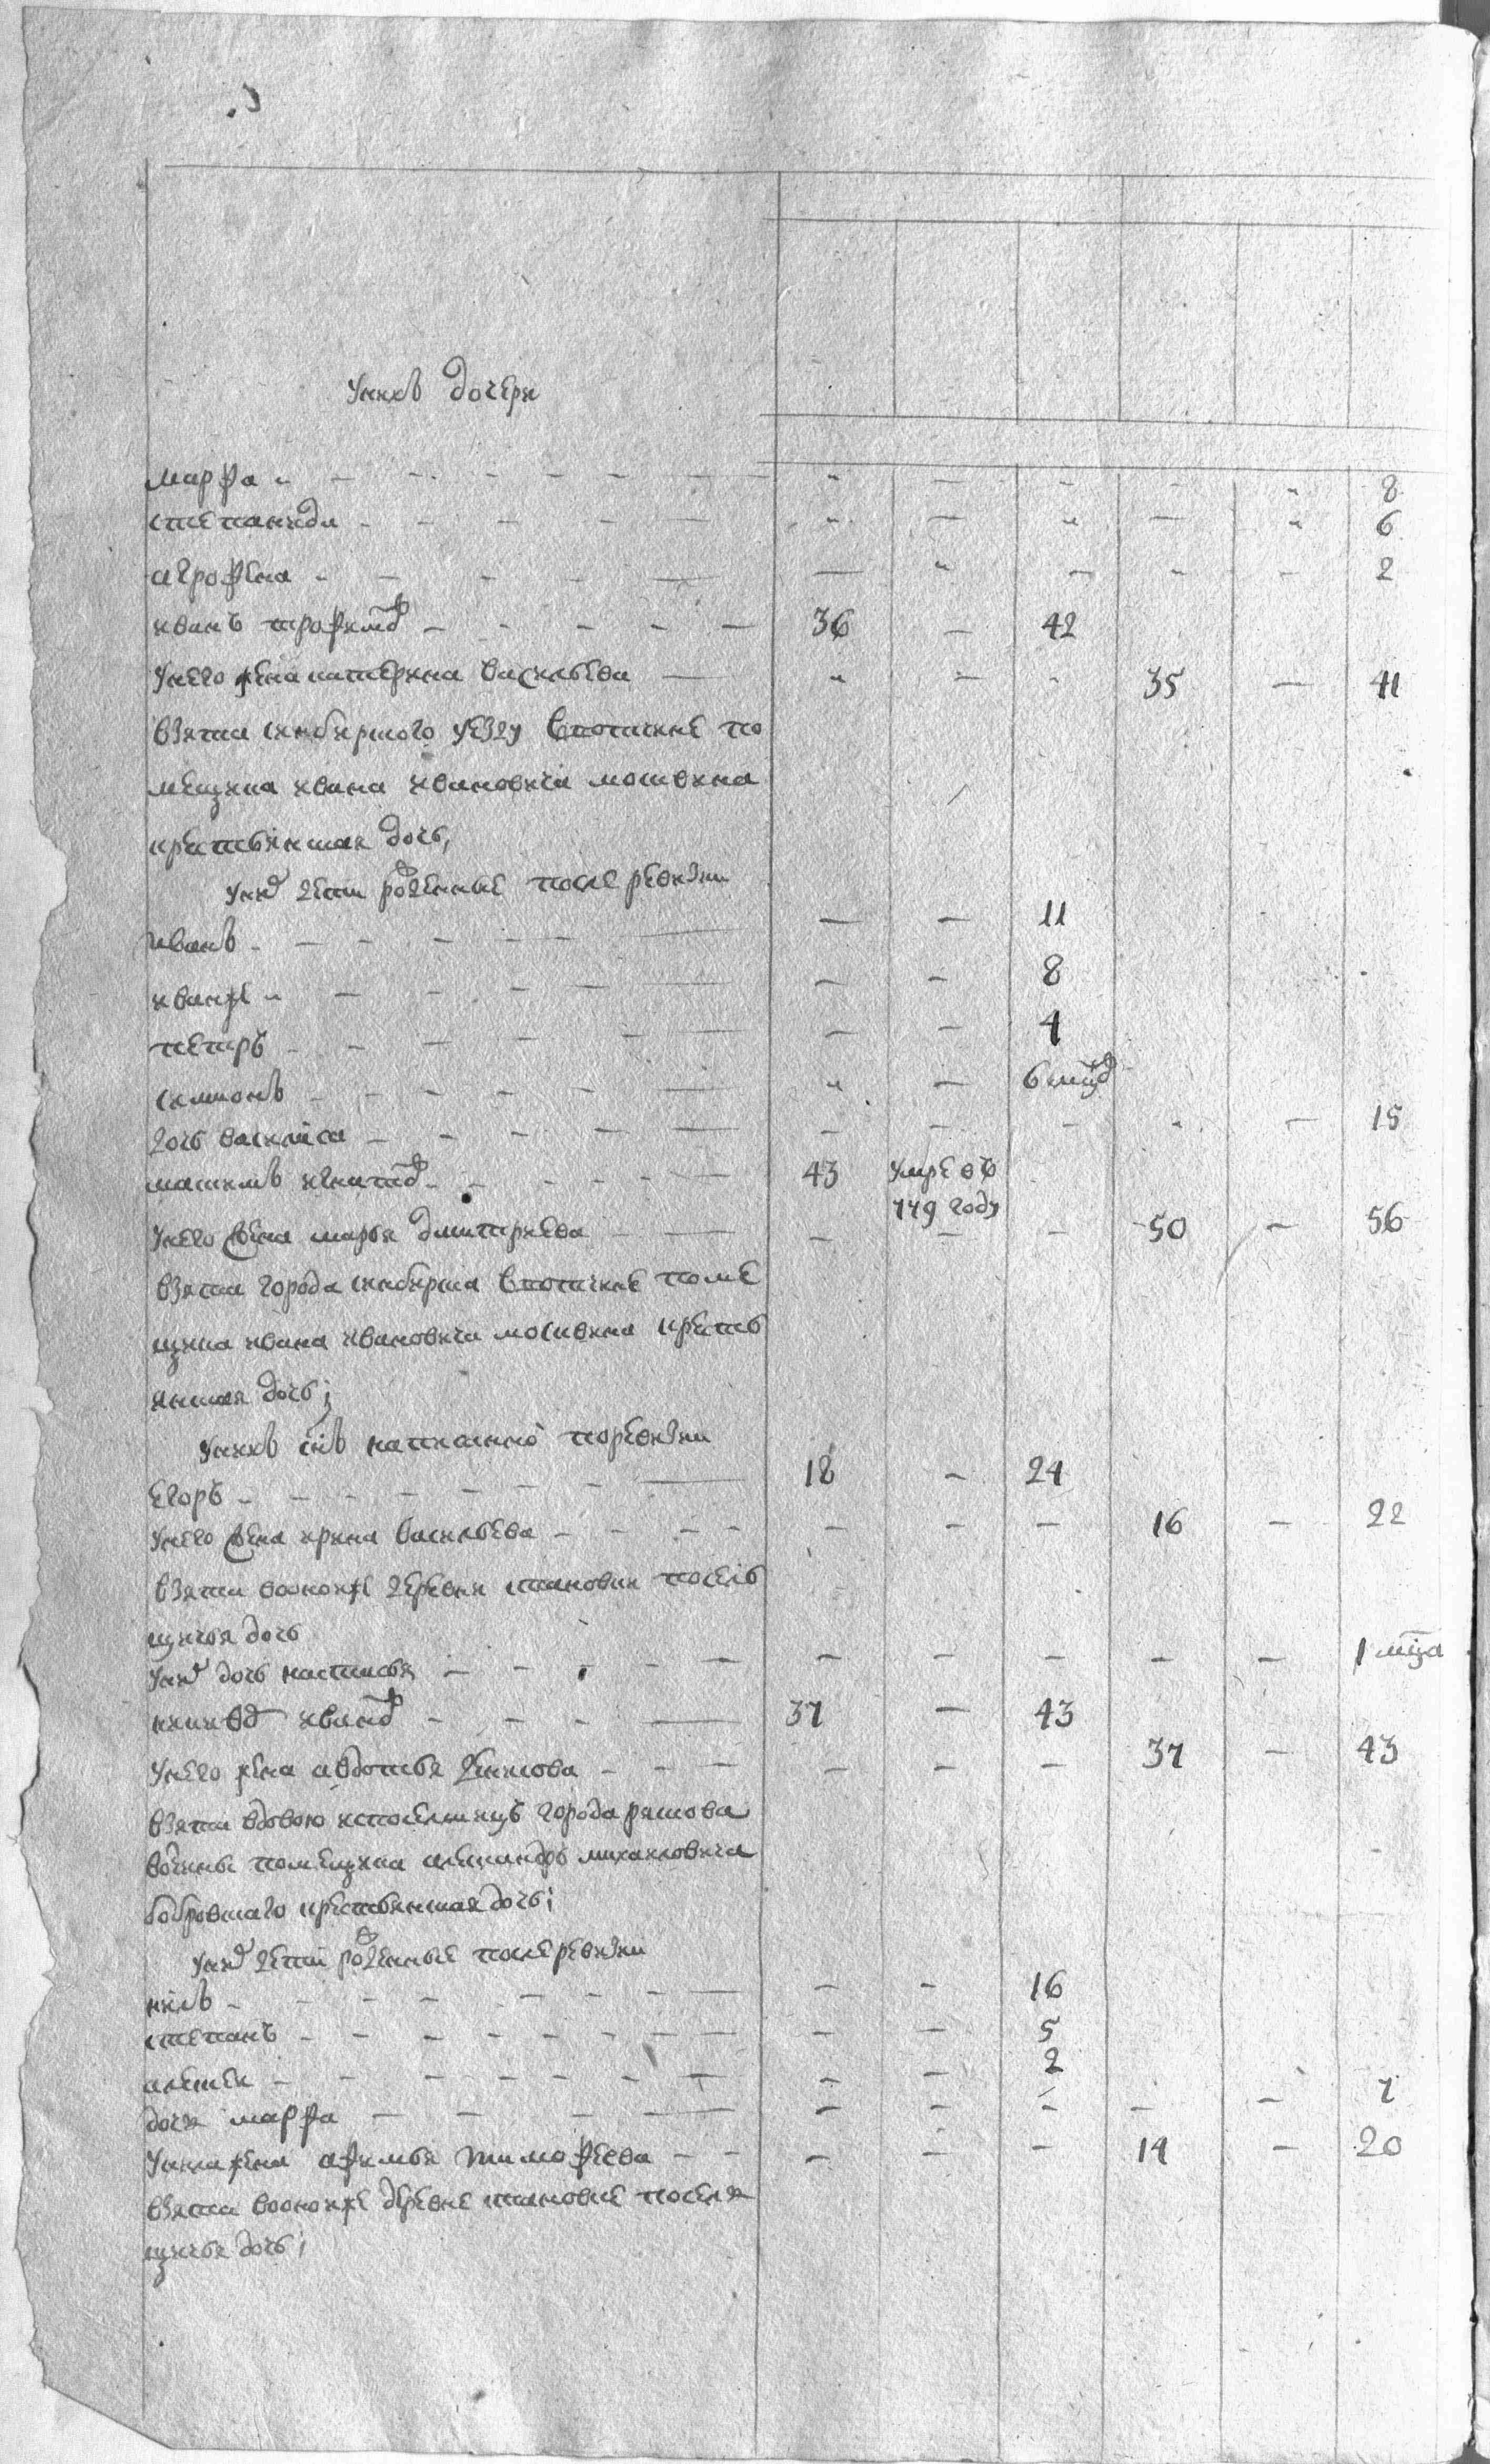 У них дочери
марфа - - - - - - - 8
степанида - - - - - - - 6
агрофена - - - - - - - 2
иванъ трофимовъ - - - 36 - 42
у него жена катерина васильева - - - 35 - 41
взята синбирского уезду вотчине по
мещика ивана ивановича москвина
крестьянская дочь,
у них дети рожденные после ревизии
иванъ - - - - - 11
иван же - - - - - 8
петръ - - - - - 4
симионъ - - - - - 6 мцов
дочь василиса - - - - - 15
максимъ игнатов - - - 43 умре въ 779 году
у него жена марья дмитриева - - - 50 - 56
взята города синбирска вотчине поме
щика ивана ивановича москвина кресть
янская дочь;
у них снъ написанной по ревизии
егоръ - - - 18 - 24
у него жена ирина васильева - - - 16 - 22
взята в оной же деревни становки посель
щичья дочь
у них дочь настасья - - - - - 1 мца
иванов - - - 37 - 43
у него жена авдотья - - - 37 - 43
взята вдовою ис поселщицъ города
вотчины помещика александръ михаиловича
бобровскаго крестьянская дочь;
у них дети рожденные после ревизии
нилъ - - - - - 16
степанъ - - - - - 5
алексеи - - - - - 2
дочь марфа - - - - - 7
у нила жена афимья тимофеева - - - 14 - 20
взята в оной же деревне становке поселя
щичья дочь;